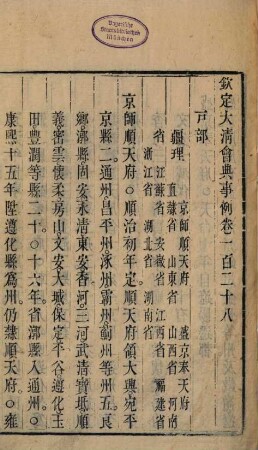 Bayerische
Staatsbibliothek
München
欽定大清會典事例卷一百二十八
戶部
疆理 京師順天府 盛京奉天府
直隸省 山東省 山西省 河南
省 江蘇省 安徽省 江西省 福建省
浙江省 湖北省 湖南省
京師順天府○順治初年定順天府領大興宛平
京縣二通州昌平州涿州霸州薊州等州五良
鄉漷縣固安永清東安香河三河武清寶坻順
義密雲懷柔房山文安大城保定平谷遵化玉
田豐潤等縣二十○十六年省漷縣入通州○
康熙十五年陞遵化縣爲州仍隸順天府○雍